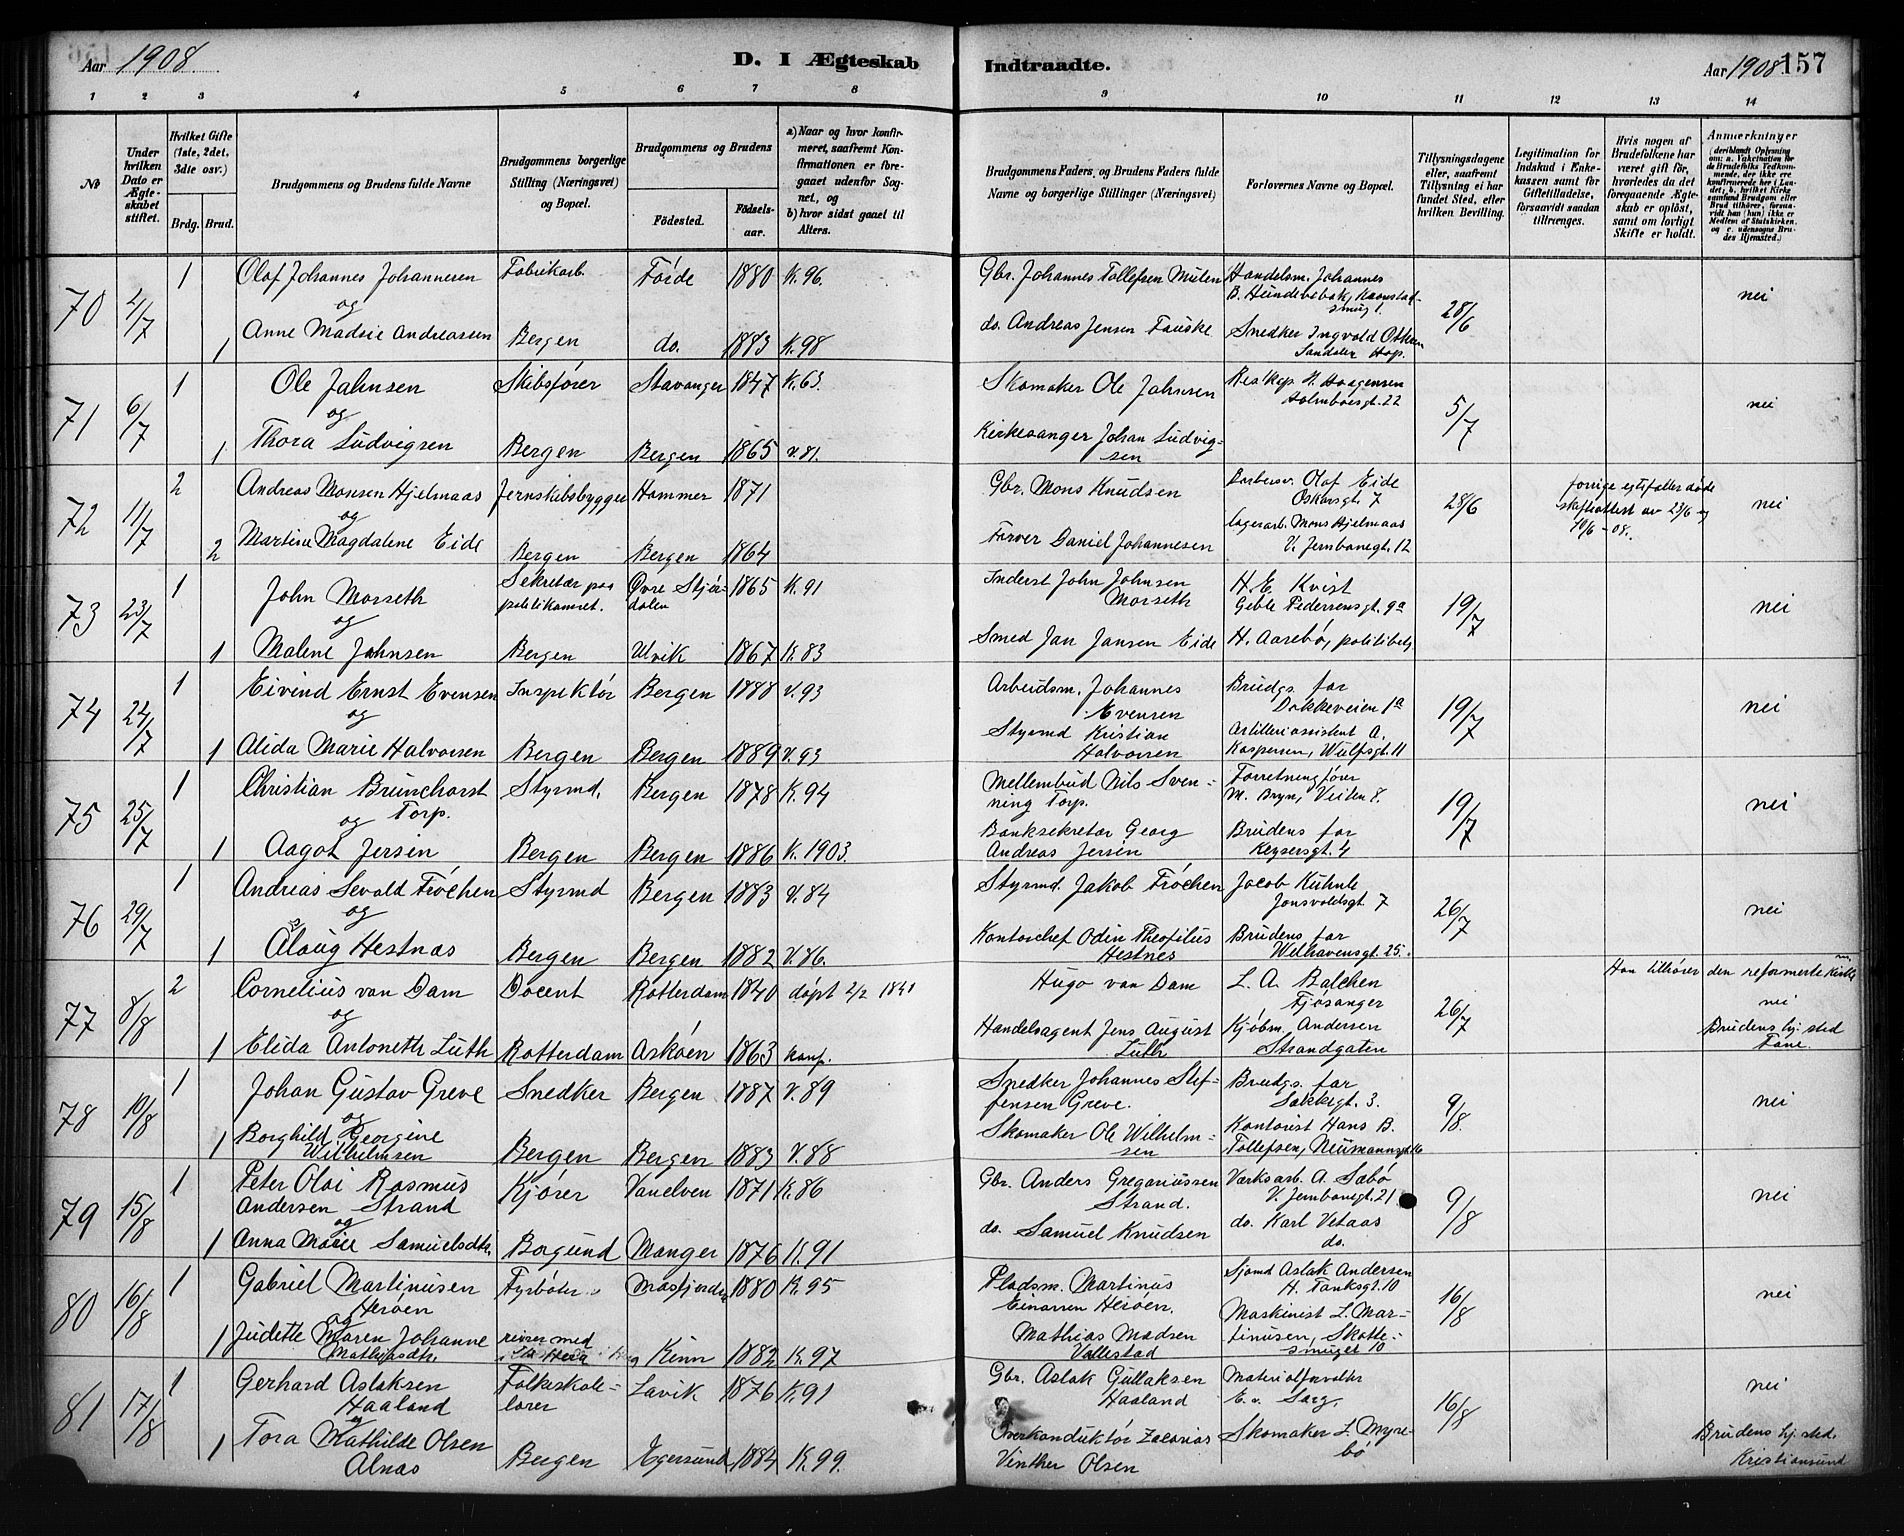 Aar 1908.
D. I Ægteskab Indtraadte.
Aar 1908. 157
1 2 3 4 5 6 7 8 9 10 11 12 13 14
No
Under hvilken Dato er Ægteskabet stiftet.
Hvilket Gifte (1ste, 2det, 3die osv.)
Brdg. Brud.
Brudgommens og Brudens fulde Navne
Brudgommens borgerlige Stilling (Næringsvei) og Bopæl.
Brudgommens og Brudens
Fødested.
Fødselsaar.
a) Naar og hvor konfirmeret, saafremt Konfirmationen er foregaaet udenfor Sognet, og
b) hvor sidst gaaet til Alters.
Brudgommens Faders, og Brudens Faders fulde Navne og borgerlige Stillinger (Næringsvei)
Forlovernes Navne og Bopæl.
Tillysningsdagene eller, saafremt Tillysning ei har fundet Sted, efter hvilken Bevilling.
Legitimation for Indskud i Enkekassen samt for Giftetilladelse, forsaavidt saadan tiltrænges.
Hvis nogen af Brudefolkene har været gift før, hvorledes da det foregaaende Ægteskab er opløst, samt om lovligt Skifte er holdt.
Anmærkninger (deriblandt Oplysning om: a. Vakcination for de Brudefolks Vedkommende, der ikke ere konfirmerede her i Landet; b. hvilket Kirkesamfund Brudgom eller Brud tilhører, forsaavidt han (hun) ikke er Medlem af Statskirken, og c. udensogns Brudes Hjemsted.)
70 4/7 1 Olaf Johannes Johannesen Fabrikarb. Førde 1880 K. 96. Gbr. Johannes Tollefsen Mulen Handelsm. Johannes
28/6 nei
og
1 Anne Madsie Andreassen Bergen do. 1883 K. 98 do. Andreas Jensen Fauske Snedker Ingvald
Hop.
71 6/7 1 Ole Jahnsen Skibsfører Stavanger 1847 K. 63. Skomaker Ole Jahnsen H. Haagensen
Holmboesgt. 22 5/7 nei
og
1 Thora Ludvigsen Bergen Bergen 1865 V. 81. Kirkesanger Johan Ludvigsen
72 11/7 2 Andreas Monsen Hjelmaas Jernskibsbygger Hammer 1871 Gbr. Mons Knudsen Barbersv. Olaf Eide
Oskarsgt. 7 28/6 forrige egtefæller døde
skifteattest av 23/6 og
10/6 - 08. nei
og
2 Martine Magdalene Eide Bergen Bergen 1864 Farver Daniel Johannesen Lagerarb. Mons Hjelmaas
V. Jernbanegt. 12
73 23/7 1 John Morseth Sekretær paa
politikamret. Øvre Stjørdalen 1865 K. 91 Inderst John Johnsen
Morseth H. E. Kvist
Geble Pedersensgt. 9a 19/7 nei
og
1 Malene Jahnsen Bergen Ulvik 1867 K. 83 Smed Jan Jansen Eide H. Aarebø, politibetj.
74 24/7 1 Eivind Ernst Evensen Inspektør Bergen 1888 V. 93 Arbeidsm. Johannes
Evensen Brudgs. far
Dokkeveien 1a 19/7 nei
og
1 Alida Marie Halvorsen Bergen Bergen 1889 V. 93 Styrmd Kristian
Halvorsen Artilleriassistent A.
Kaspersen, Wulfsgt. 11
75 25/7 1 Christian Brunchorst
Torp. Styrmd. Bergen 1878 K. 94 Mellembud Nils Svenning
Torp. Forretningsfører
M. Bryn, Veiten 8. 19/7 nei
og
1 Aagot Jersin Bergen Bergen 1886 K. 1903. Banksekretær Georg
Andreas Jersin Brudens far
Keysersgt. 4
76 29/7 1 Andreas Sevald Frøchen Styrmd Bergen 1883 V. 84 Styrmd. Jakob Frøchen Jacob Kuhnle
Jonsvoldsgt 7 26/7 nei
og
1 Aslaug Hestnæs Bergen Bergen 1882 V. 86. Kontorchef Odin Theofilus
Hestnes Brudens far
Welhavensgt. 25.
77 8/8 2 Cornelius van Dam Docent Rotterdam 1840 døpt 2/2 1841 Hugo van Dam L. A. Balchen
Fjøsanger 26/7 Han tilhører den reformerte kirke
nei
og
1 Elida Antoneth Luth Rotterdam Askøen 1863 konf. Handelsagent Jens August
Luth Kjøbm. Andersen
Strandgaten Brudens hj. sted
Fane.
78 10/8 1 Johan Gustav Greve Snedker Bergen 1887 V. 89 Snedker Johannes Steffensen
Greve. Brudgs. far
3. 9/8. nei
og
1 Borghild Georgine
Wilhelmsen Bergen Bergen 1883 V. 88 Skomaker Ole Wilhelmsen Kontorist Hans B.
Tollefsen, Neumannsgt.
79 15/8 1 Peter Olai Rasmus
Andersen Strand Kjører Vanelven 1871 K. 86 Gbr. Anders Gregoriussen
Strand. Værksarb. A. Sæbø
V. Jernbanegt. 21 9/8 nei
og
1 Anna Marie Samuelsdtr. Borgund Manger 1876 K. 91 do. Samuel Knudsen do. Karl Vetaas
do.
80 16/8 1 Gabriel Martinusen
Herøen Fyrbøter Masfjorden 1880 K. 95 Pladsm. Martinus
Einarsen Herøen. Sjømd Aslak Andersen
H. Tanksgt. 10 16/8 nei
og
1 Judette Maren Johanne
Mathiasdtr. reiser med
Kinn 1882 K. 97 Mathias Madsen
Vallestad Maskinist L. Martinusen,
Skottesmuget 10
81 17/8 1 Gerhard Aslaksen
Haaland Folkeskolelærer Lavik 1876 K. 91 Gbr. Aslak Gullaksen
Haaland Materialforvalter
E. v. Sarg. 16/8 nei
og
1 Tora Mathilde Olsen
Alnæs Bergen Egersund 1884 K. 99. Overkonduktør Zacarias
Vinther Olsen Skomaker L. Myrebø Brudens hj. sted.
Kristiansund